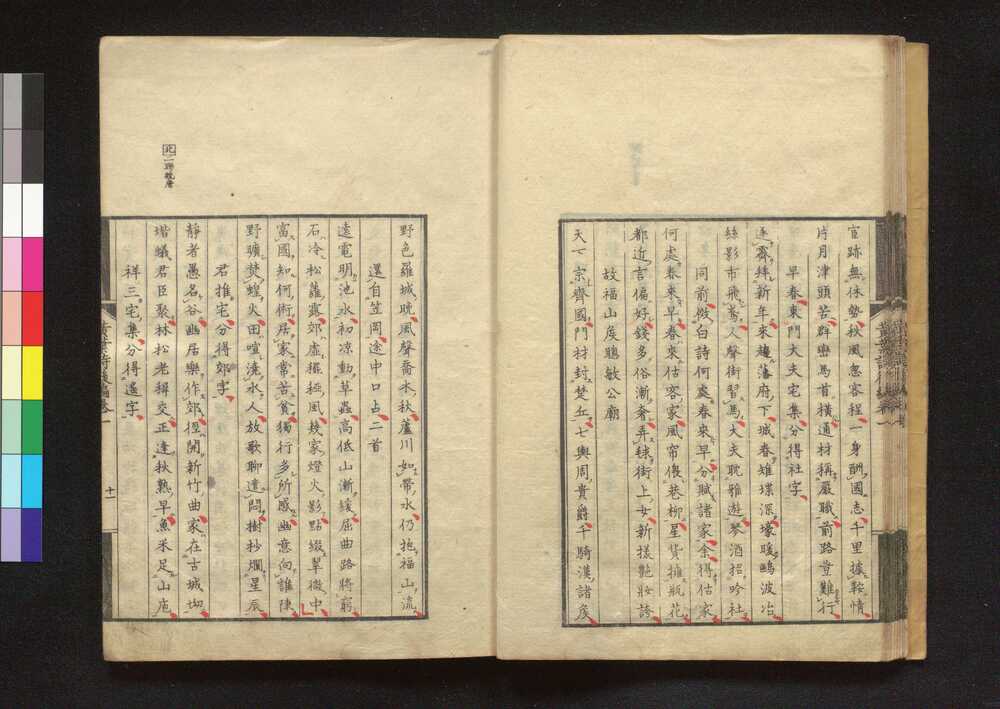 宦跡無休勢秋風急客程一身酬國志千里據鞍情
片月津頭苦群巒馬首橫通材稱嚴職前路豈難行
早春東門大夫宅集分得社字
逐霖絆新年來趨藩府下城春雉堞深壕暖鷗波冶
絲影市飛鳶人聲街習馬大夫耽雅遊琴酒招吟社
同前倣白詩何處春來早分賦諸家余得估家
何處春來早春來估客家風帘偎巷柳星貨擁瓶花
都近言偏好錢多俗漸奢弄毬街上女新樣艷妝誇
故福山侯聰敏公廟
天下宗齊國門材封楚丘七輿周貴爵千騎漢諸侯
野色羅城晩風聲喬木秋蘆川如帶水仍抱福山流
還自笠岡途中口占二首
遠電明池水初涼動草蟲高低山漸緩屈曲路將窮
石冷松蘿露郊虛穤稏風幾家燈火影點綴翠微中
富國知何術居家常苦貧獨行多所感幽意向誰陳
野曠焚蝗火田喧澆水人放歌聊遣悶樹杪爛星辰
君推宅分得郊字
靜者愚名谷幽居樂作郊徑開新竹曲家在古城坳
堦蟻君臣聚林松老穉交正逢秋熟早魚米足山庖
祥三宅集分得遥字
北二聯晩唐
十一